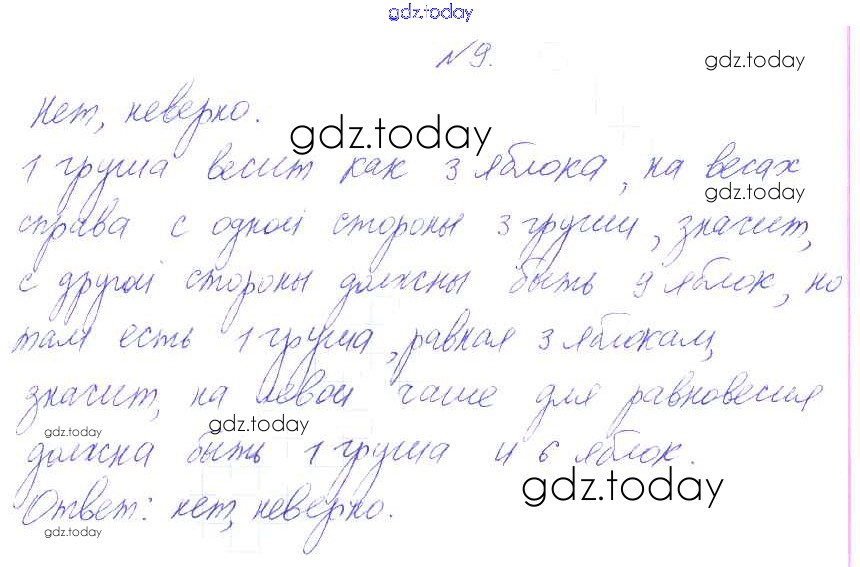 gdz.today
№9.
gdz.today
Нет, неверно.
gdz.today
1 груша весит как 3 яблока, на весах
gdz.today
справа с одной стороны 3 груши, значит,
с другой стороны должны быть 9 яблок, но
там есть 1 груша, равная 3 яблокам,
значит, на левой чаше для равновесия
gdz.today
gdz.today
должна быть 1 груша и 6 яблок.
gdz.today
Ответ: нет, неверно.
gdz.today